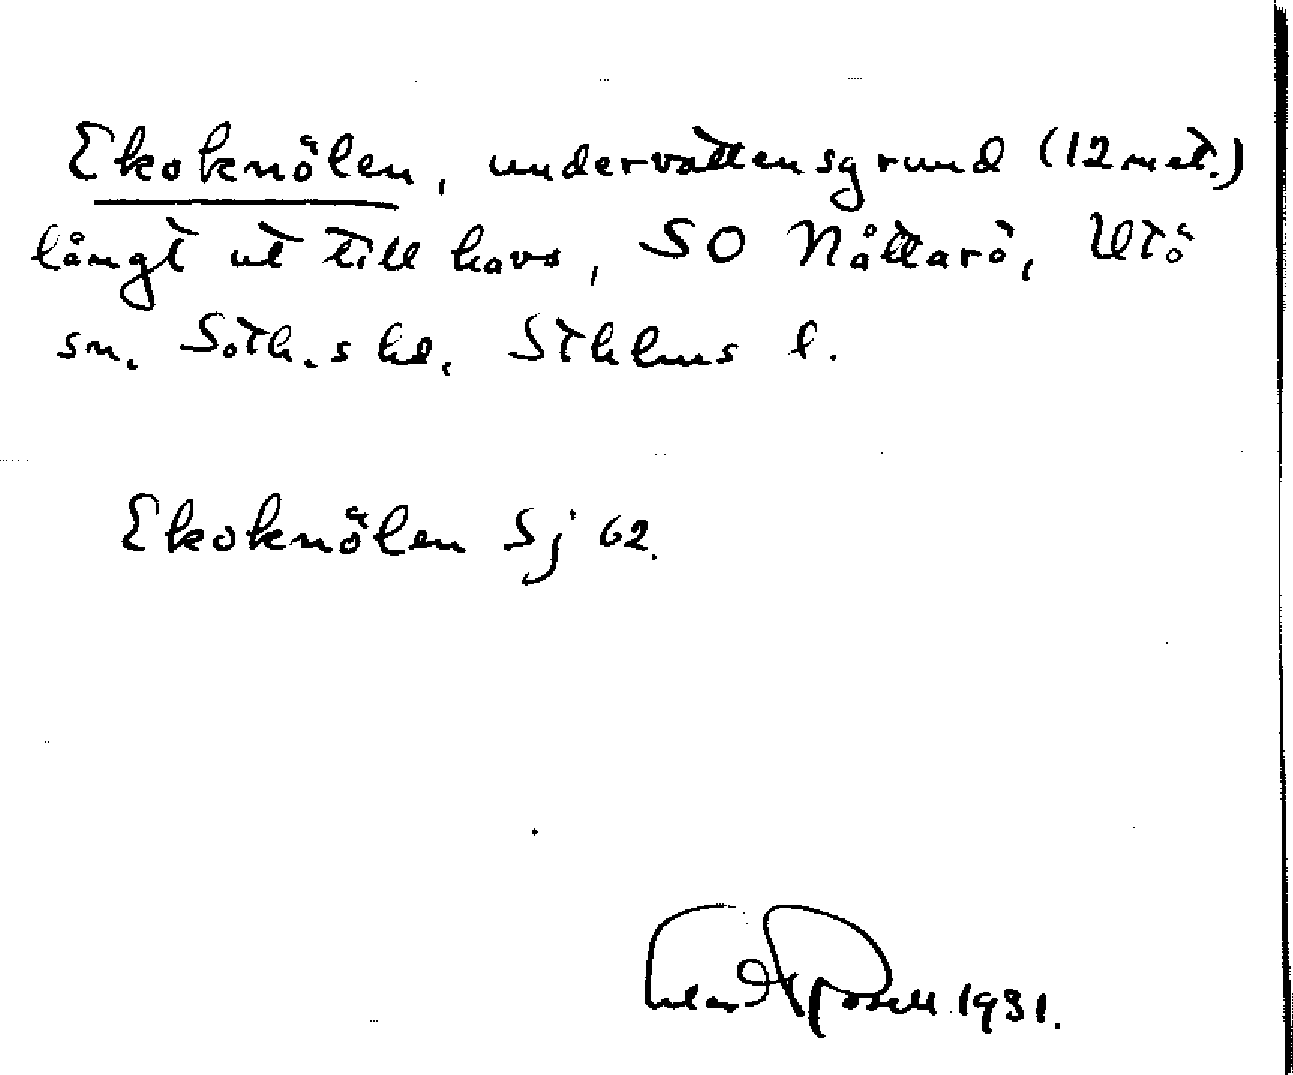 Ekoknölen, undervattensgrund (12 met.)
långt ut till havs, SO Nåttarö, Utö
sn. Soth.s hd. Sthlms l.
Ekoknölen Sj 62.
1931.